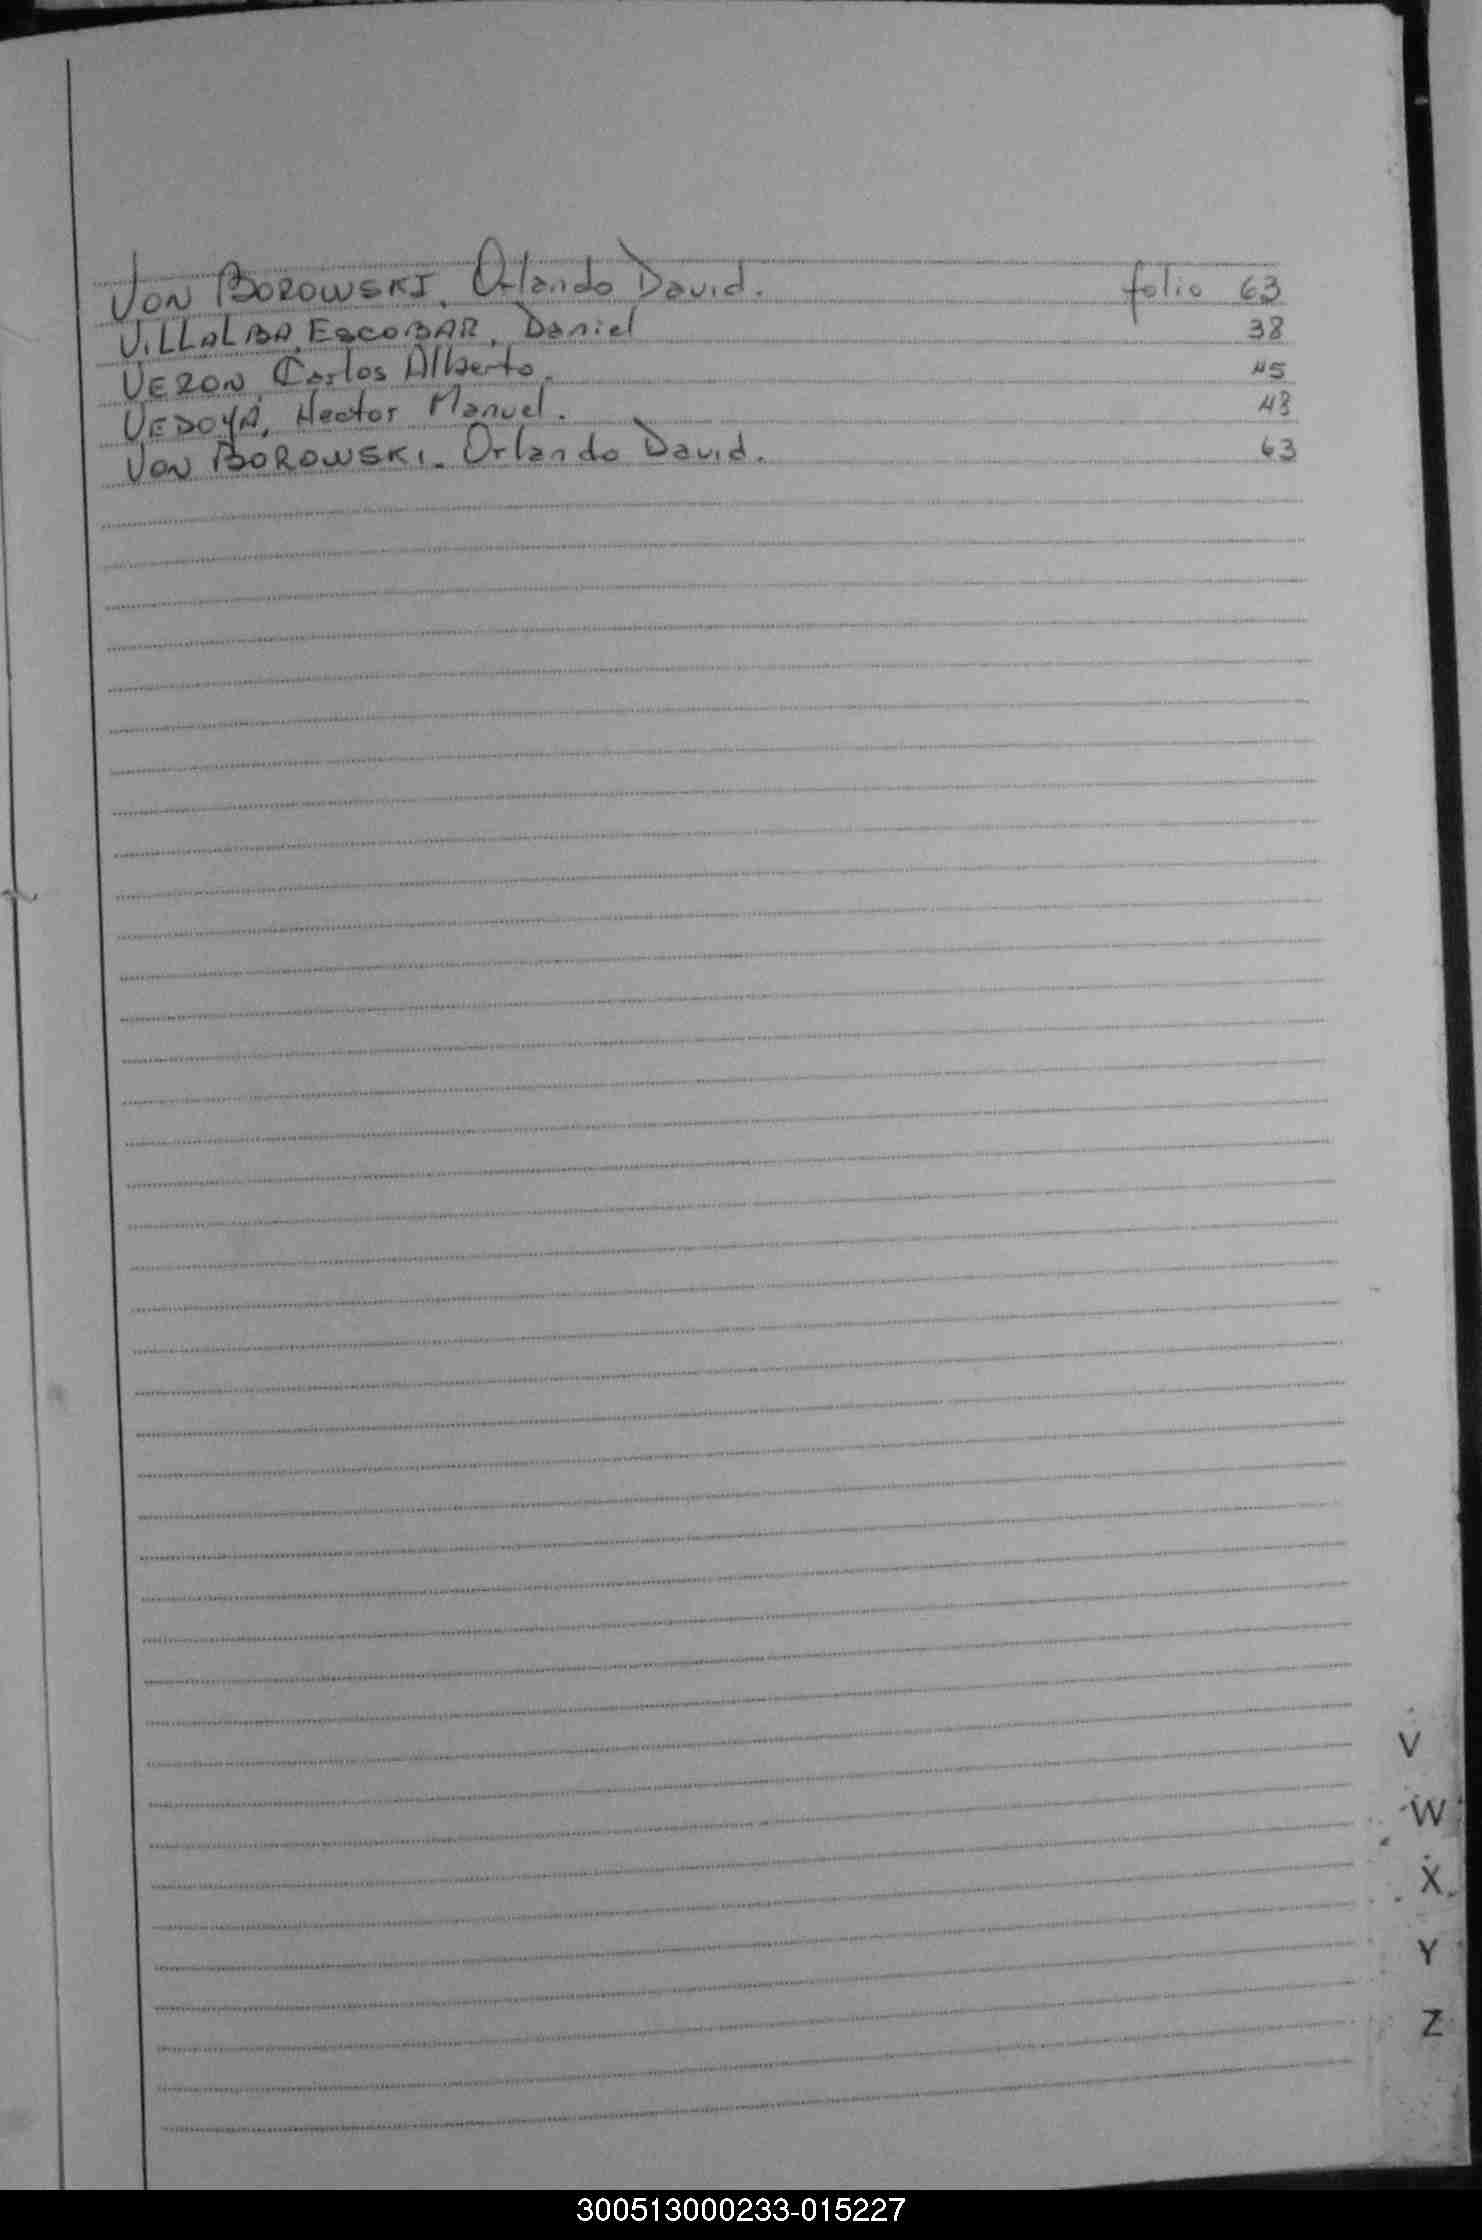 VON BOROWSKI, Orlando David. folio 63
VILLALBA ESCOBAR, Daniel 38
VERON, Carlos Alberto. 45
VEDOYA, Hector Manuel. 43
VON BOROWSKI. Orlando David. 63
V
W
X
Y
Z
300513000233-015227